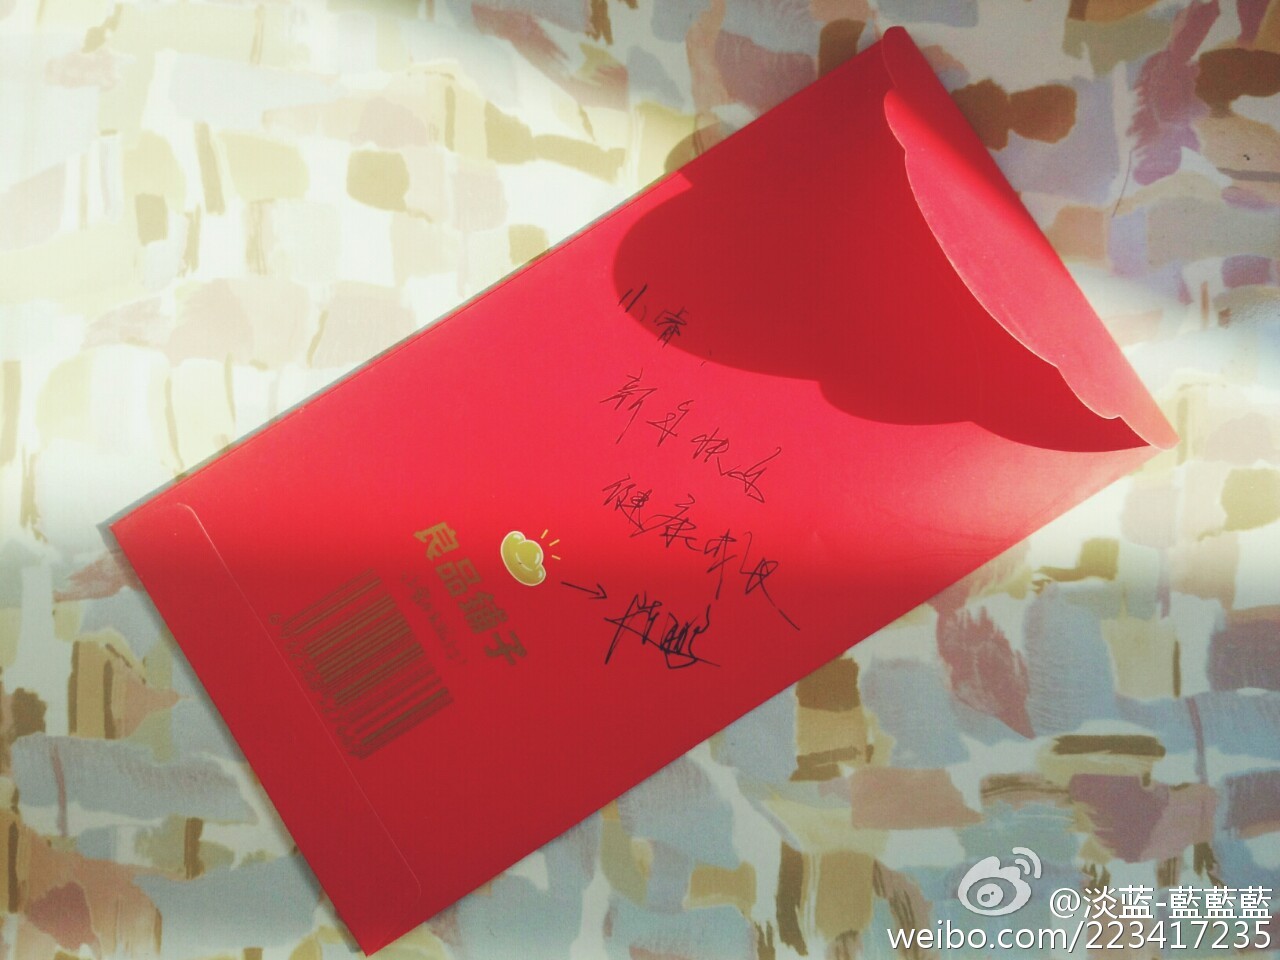 小宵：
新年快乐
健康成长
良品铺子
@淡蓝-藍藍藍
weibo.com/223417235